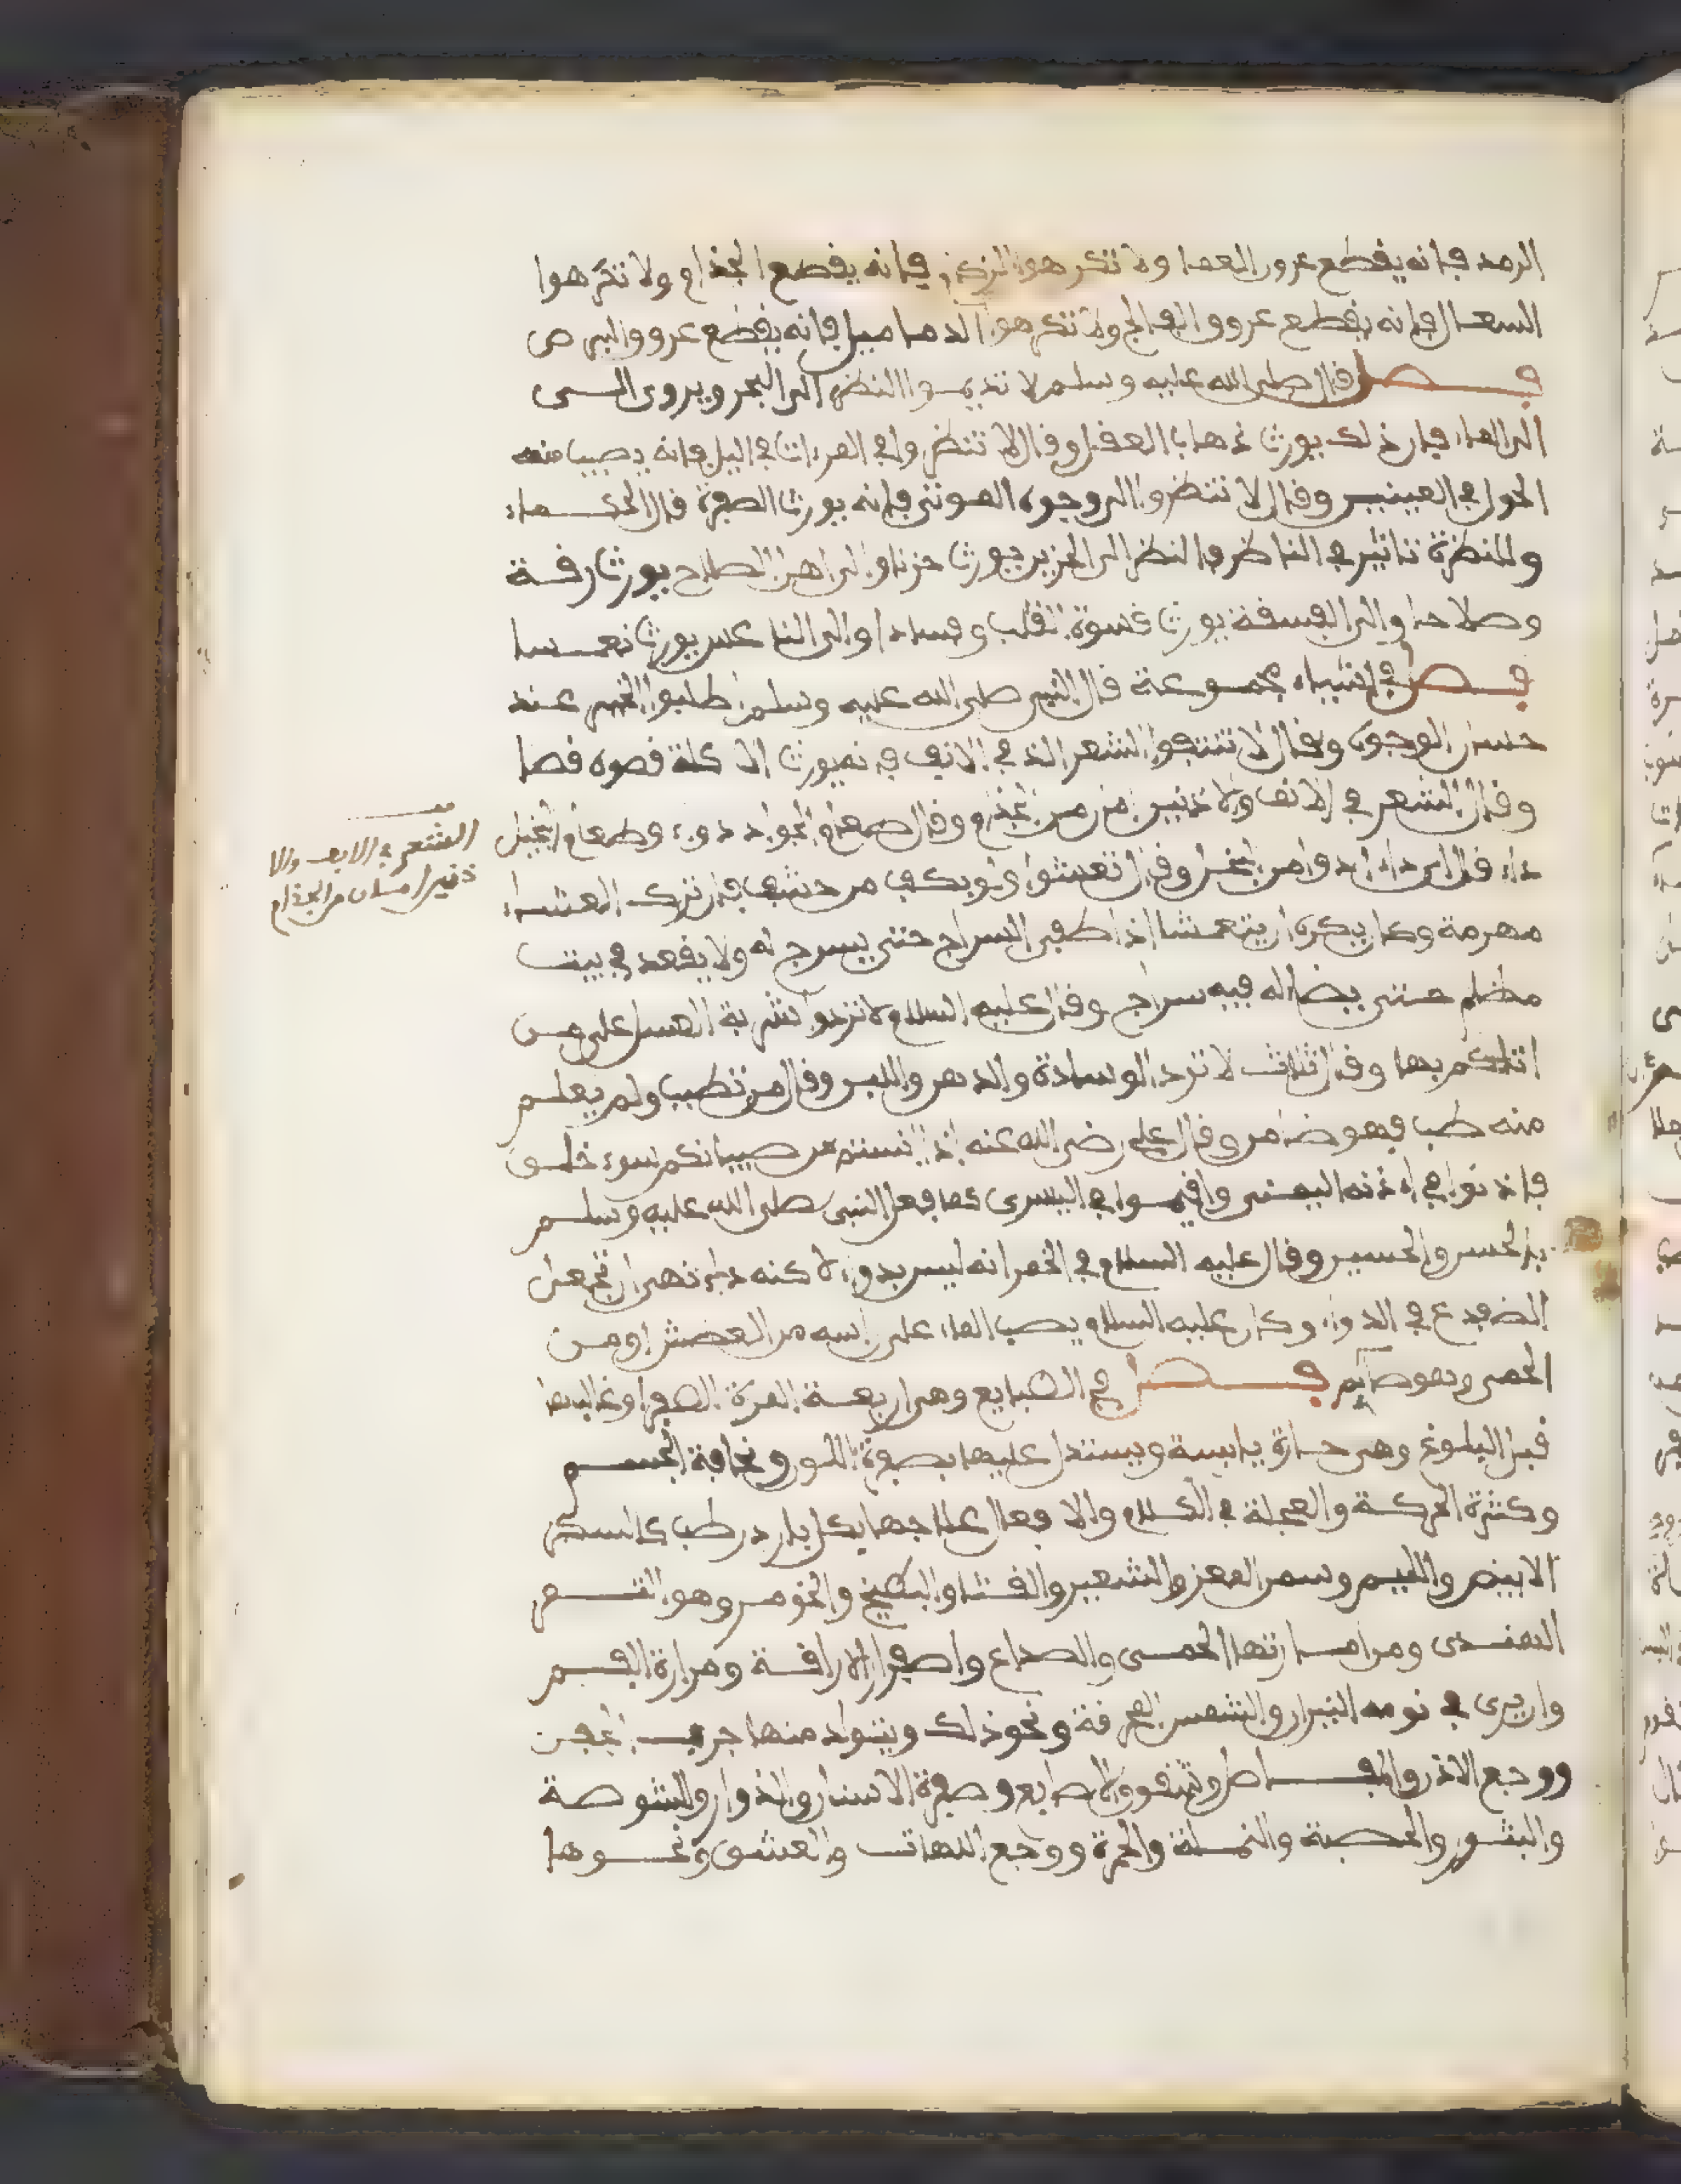 الرمد فإنه يقطع عروق العما ولا تكرهوا الزكام فإنه يقطع الجذام ولا تكرهوا
السعال فإنه يقطع عروق الفالج ولا تكرهوا الدماميل فإنه يقطع عروق البرص
فصل قال صلى الله عليه وسلم لا تديموا النظر الى البحر ويروى
الى الماء فإن ذلك يورث ذهاب العقل وقال لا تنظروا في المرءات في اليل فإنه يصيب منه
الحول في العينين وقال لا تنظروا الى وجوه الموتى فإنه يورث الصفرة قال الحكماء
وللنظرة تاثير في الناظر فالنظر الى الحزين يورث حزنا والى اهل الصلاح يورث رقة
وصلاحا والى الفسقة يورث قسوة القلب وفسادا والى الناعس يورث نعسا
فصل في اشياء مجموعة قال النبي صلى الله عليه وسلم اطلبوا الخير عند
حسان الوجوه وقال لا تنتفوا الشعر الذي في الانف فإنه يورث الاكلة قصوه قصا
وقال الشعر في الانف والاذنين امن من الجذام وقال طعام الجواد دواء وطعام البخيل
داء قال اي داء ادوا من البخل وقال تعشوا ولو بكف من حشف فإن ترك العشاء
مهرمة وكان يكره ان يتعشا اذا طفي السراج حتى يسرج له ولا يقعد في بيت
مظلم حتى يضاء له فيه سراج وقال عليه السلام لا تردوا شربة العسل على من
اتاكم بها وقال ثلاث لا ترد الوسادة والدهن واللبن وقال من تطبب ولم يعلم
منه طب فهو ضامن وقال علي رضي الله عنه اذا من صبيانكم سوء خلق
فاذنوا في اذنه اليمنى واقيموا في اليسرى كما فعل النبي صلى الله عليه وسلم
بالحسن والحسين وقال عليه السلام في الخمر انه ليس بدواء لاكنه داء نهى ان تجعل
الضفدع في الدواء وكان عليه السلام يصب الماء على راسه من العطش او من
الحمى وهو صايم فصل في الطبايع وهي اربعة المرة الصفرا وغالبها
قبل البلوغ وهي حارة يابسة ويستدل عليها بصفرة اللون ونحافة الجسم
وكثرة الحركة والعجلة في الكلام والافعال علاجها بكل بارد رطب كالسكر
الابيض واللبم وسمن المعز والشعير والقثاء والبطيخ والخومر وهو التمر
الهندى ومن امارتها الحمى والصداع واصفرار الاراقة ومرارة الفم
وان يرى في نومه النيران والشمس المحرقة ونحو ذلك ويتولد منها جرب الجفن
ووجع الاذن وشقوق الاصابع وصفرة الاسنان والشوصة
والبثور والحصبة والنملة والحمرة ووجع اللهات والعشق ونحوها
الشعر في الانف والا
ذنين امان من الجذام